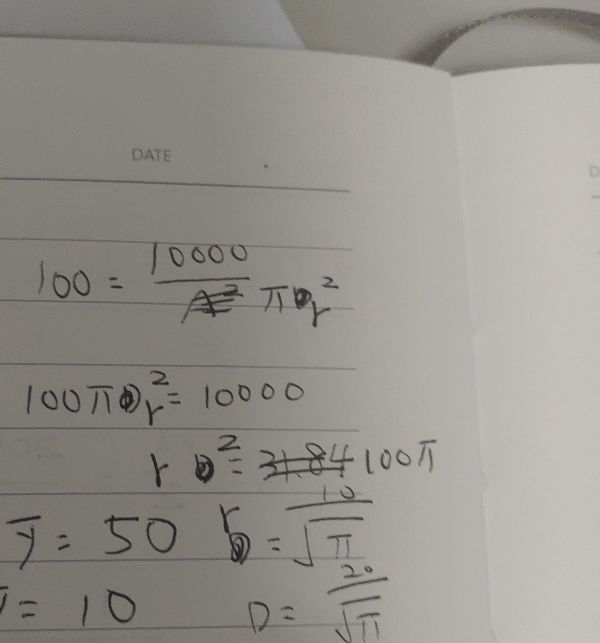 DATE
100 = 10000 / πr²
100πr² = 10000
r² = 100π
y̅ = 50 r = 10/√π
= 10 D = 20/√π